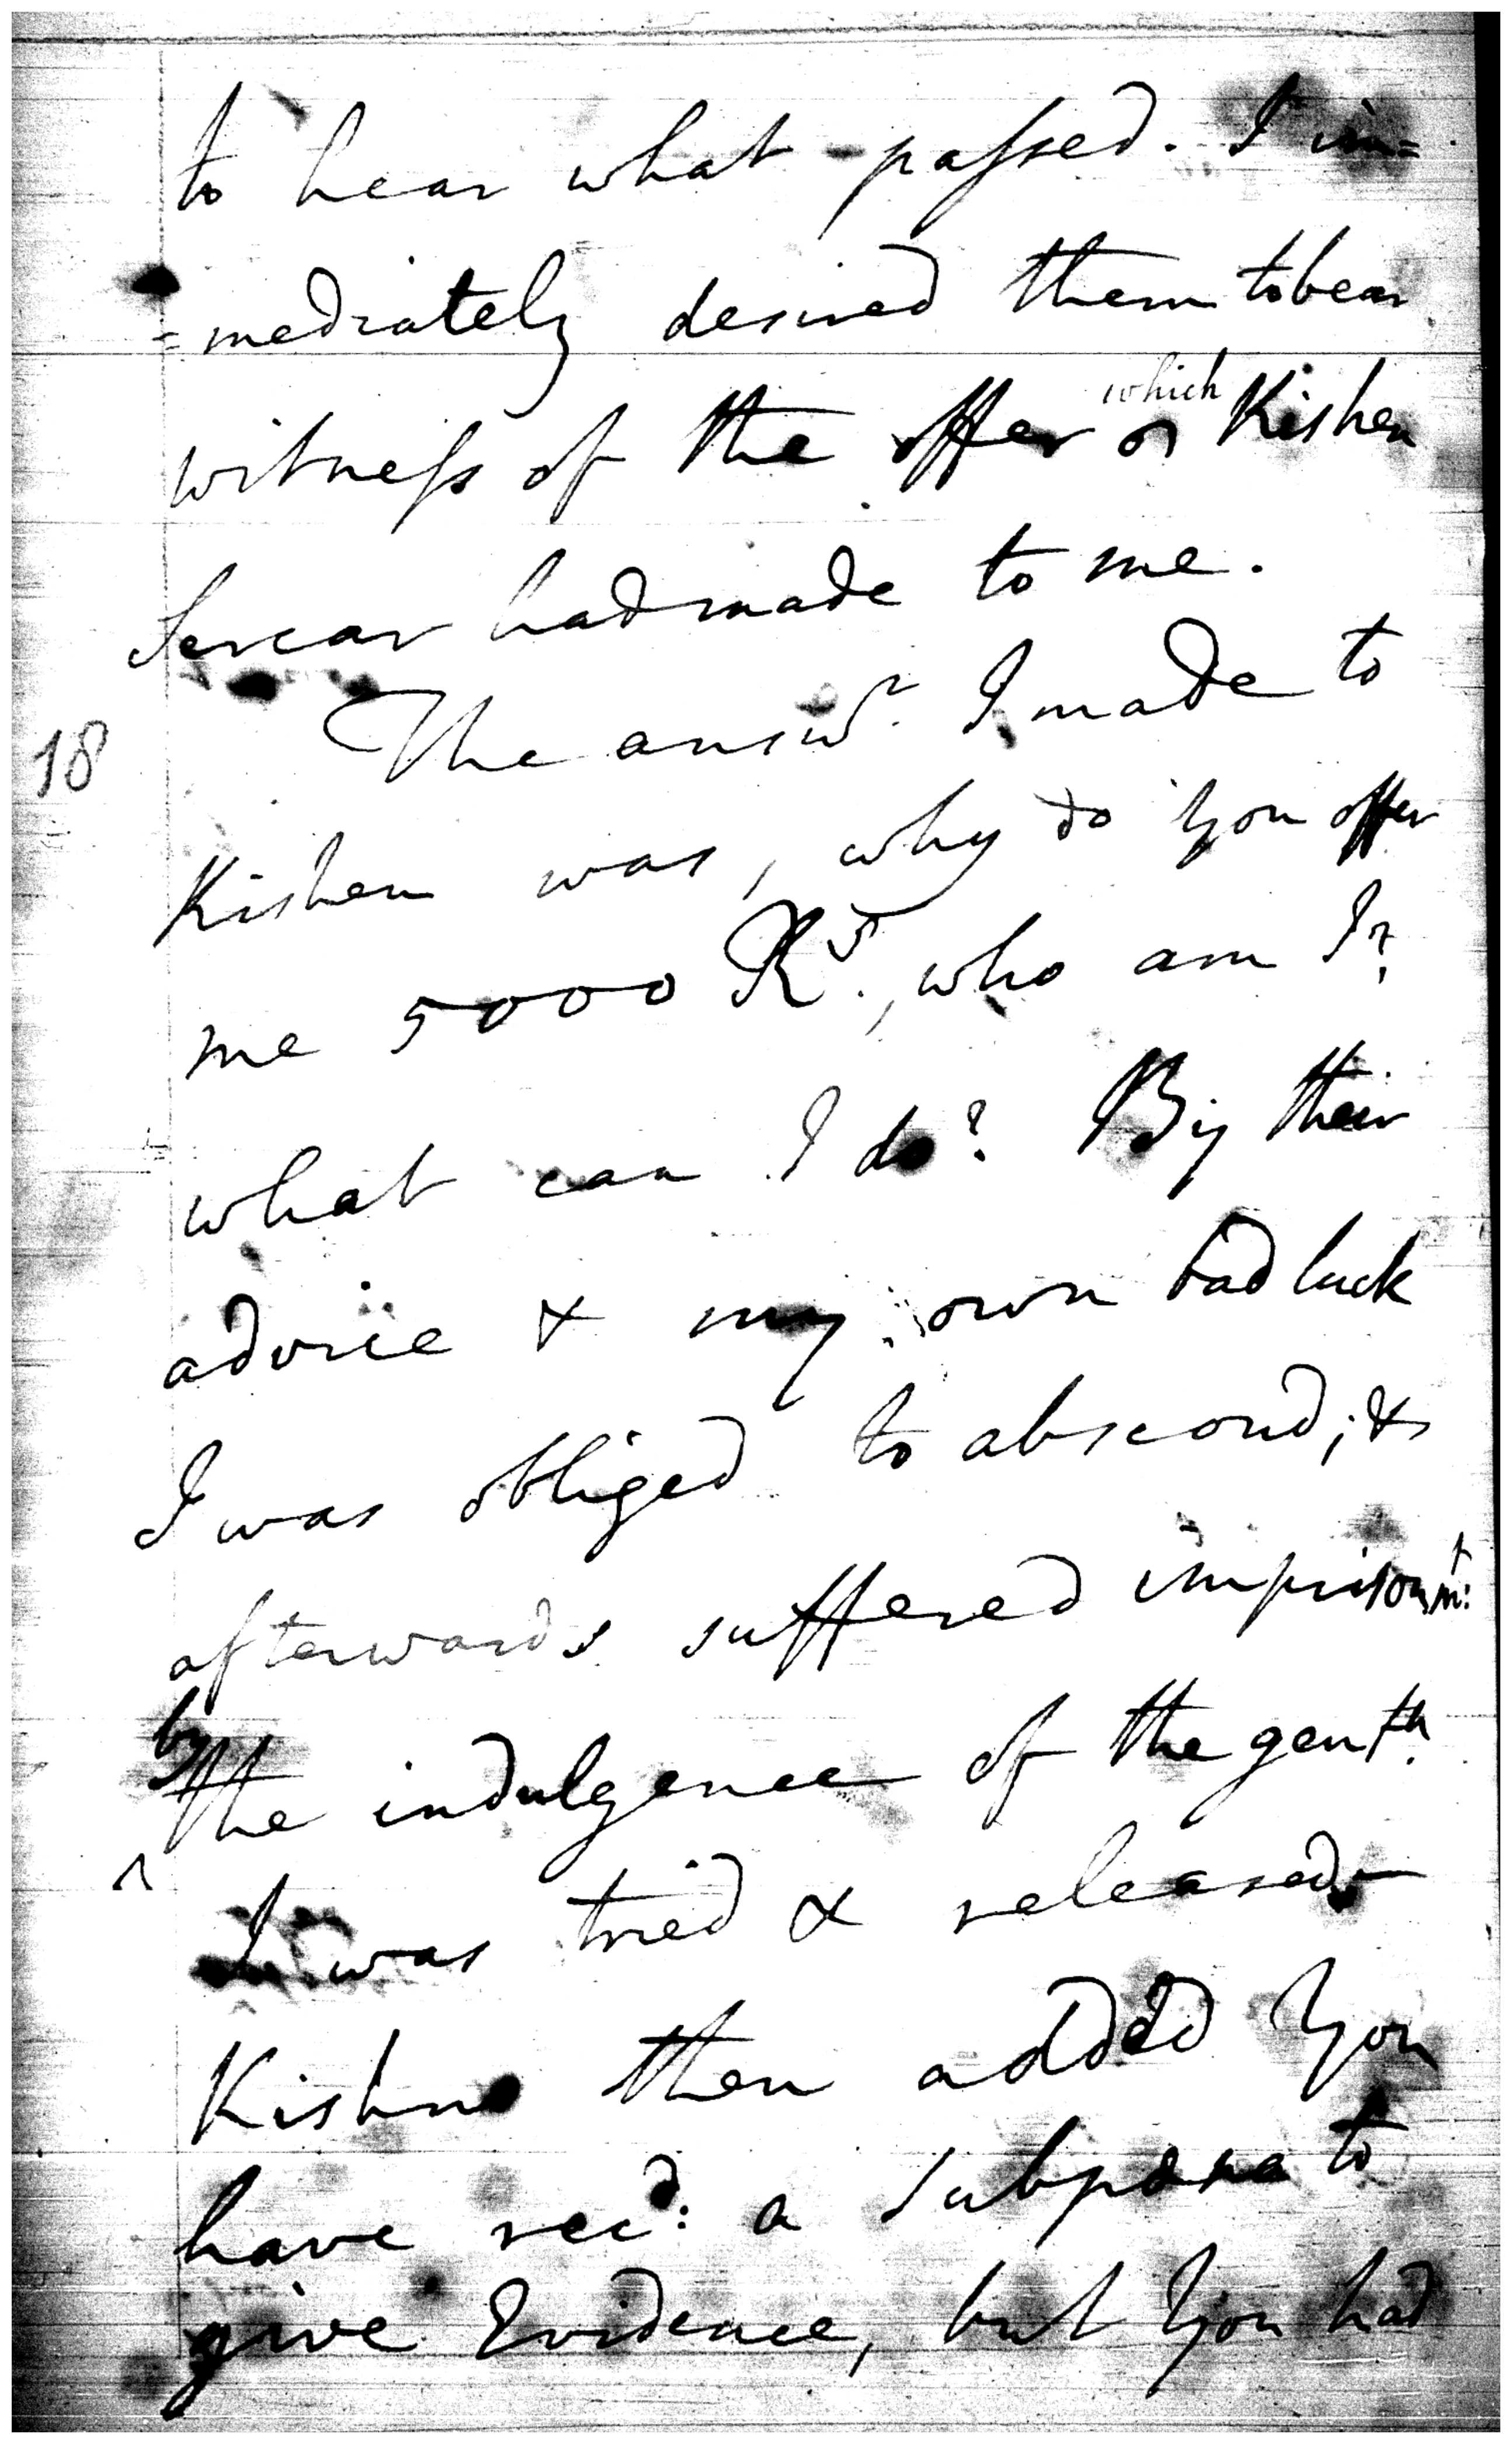 to hear what passed. I im=
=mediately desired them to bear
which
witness of the offer Kishen
Sercar had made to me.
The answr. I made to
18
Kishen was, why do You offer
me 5000 Rs., who am I?
what can I do? By their
advice & my own bad luck
I was obliged to abscond; &
afterwards suffered imprisonmt:
by
the indulgence of the gentn.
^
I was tried & released
Kishno then added You
have recd: a subpoena to
give Evidence, but You had